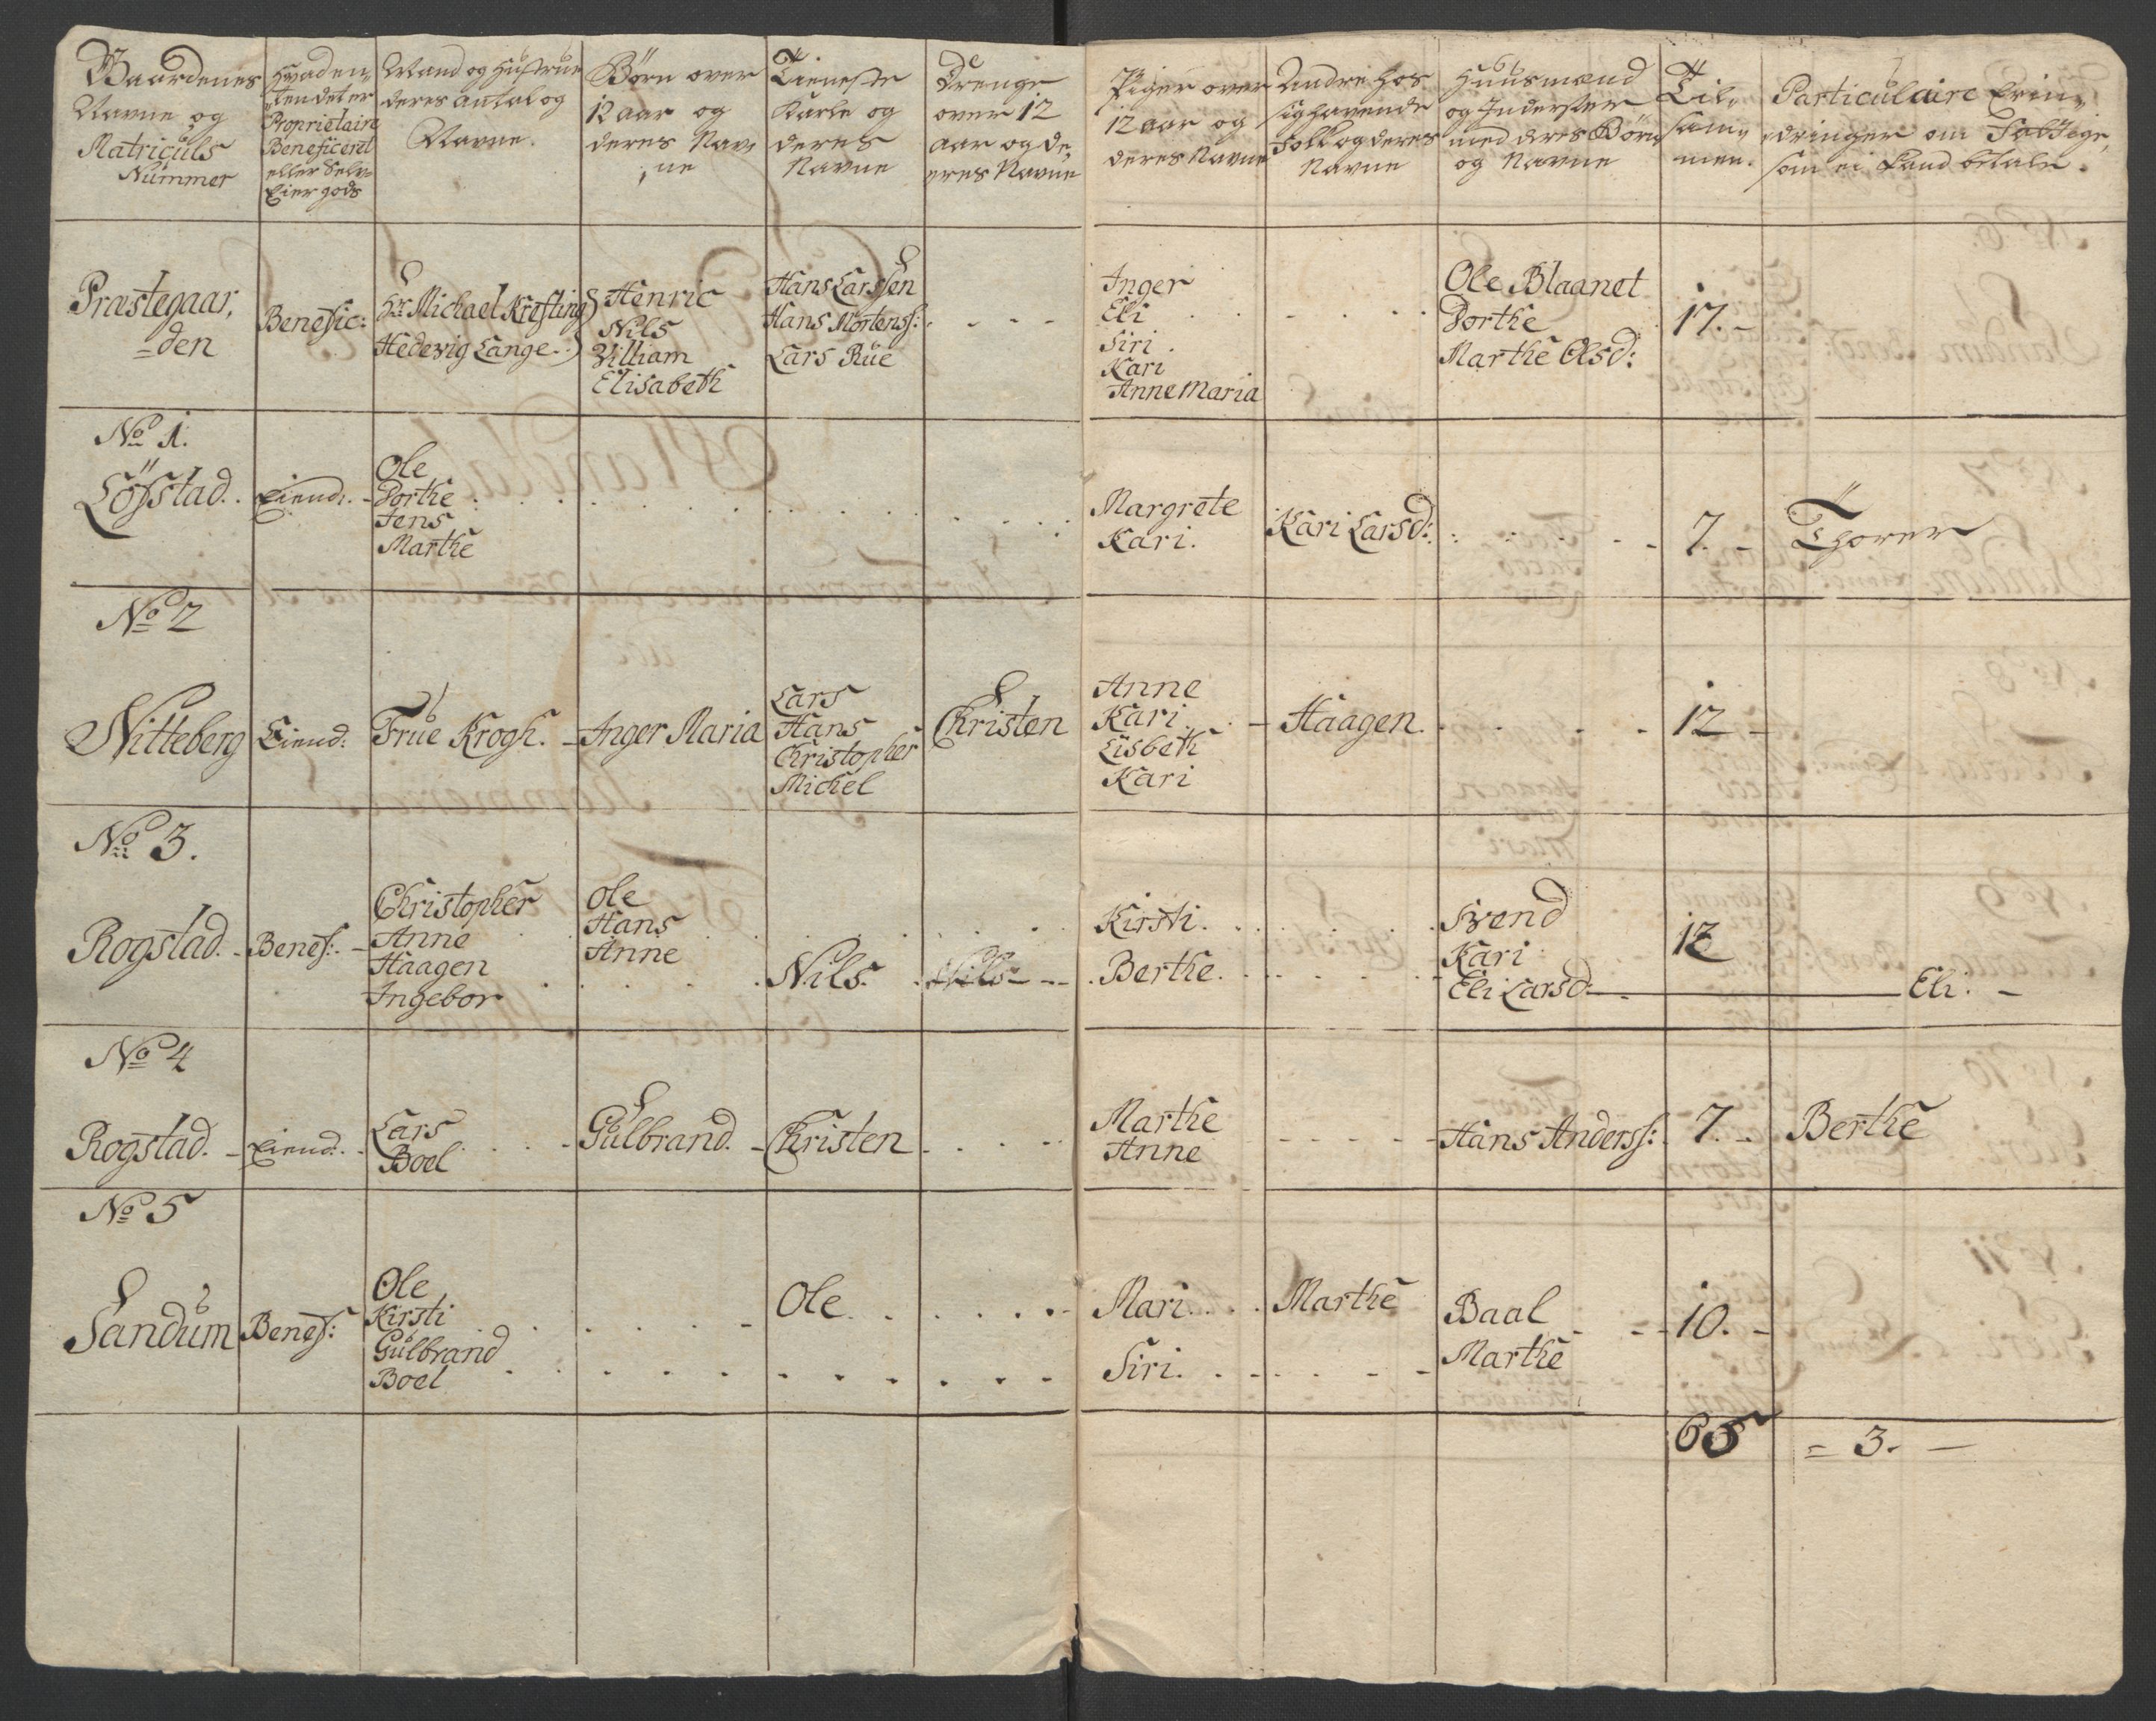 Gaardenes
Navne og
Matriculs
Nummer
Hvad en,,
,,ten det er
Proprietaire
Beneficeret
eller Selv,,
Eier gods
Mand og Hustrue
deres antal og
Navne.
Børn over
12 aar og
deres Nav,
,ne
Tieneste
Karle og
deres
Navne
Drenge
over 12
aar og de,
eres Navne
Piger over
12 aar og
deres Navne
Andre hos
sig havende
Folk og deres
Navne
Huusmænd
og Inderster
med deres Børn
og Navne
Til,,
sam,,
men.
Particulaire Erin,,
,,dringer om
som ei kand betale.
Præstegaar,
=den
Benefic:
Hr Michael Krefting
Hedevig Lange.
Henric
Nils
Villiam
Elisabeth
Hans Larssen
Hans Mortenss:
Lars Rüe
Inger
Eli
Siri
Kari
Anne Maria
Ole Blaanet
Dorthe
Marthe Olsd:
17.
No 1.
Löfstad.
Eiend:
Ole
Dorthe
Jens
Marthe
Margrete
Kari.
Kari Larsd:
7.
Thorer
No 2
Nitteberg
Eiend:
Frue Krogh.
Inger Maria
Lars
Hans
Christopher
Michel
Christen
Anne
Kari
Lisbeth
Kari
Haagen.
12
No 3.
Rogstad.
Benef:
Christopher
Anne
Haagen
Ingebor
Ole
Hans
Anne
Nils.
Nils
Kirsti.
Berthe.
Svend
Kari
Eli Larsd:
12
Eli.
No 4
Rogstad.
Eiend:
Lars
Boel
Gülbrand.
Christen
Marthe
Anne
Hans Anderss:
7.
Berthe
No 5
Sandüm
Benef:
Ole
Kirsti
Gülbrand
Boel
Ole
Mari
Siri.
Marthe
Baal
Marthe
10.
65
= 3. —